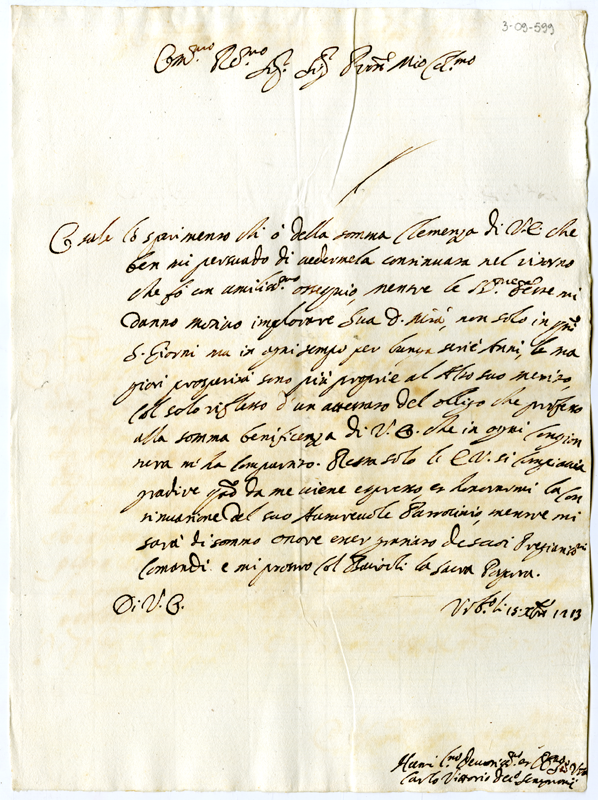 3-09-599
Em.mo Re.mo
Sig.r Sig.r Pron Mio Col.mo
È tale lo sperimento ch'ò della somma Clemenza di V.E. che
ben mi persuado di vedermela continuata nel ritorno
che fò con umiliss.mo ossequio, mentre le feste mi
danno motivo implorare Sua D. Mtà, non solo in q.ti
S. Giorni ma in ogni tempo per lunga serie Anni, le ma
giori prosperità sono più proprie al Alto suo merito,
Col solo riflesso d'un attestato del obligo che professo
alla somma benificenza di V.E. che in ogni Congion
tura m'ha Compartito. Resta solo le E.V. si Compiaccia
gradire q.to da me viene espresso et honorarmi la Con
tinuatione del suo Autorevole Patrocinio, mentre mi
sarà di sommo onore esser graziato de suoi Pregiatis.mi
Comandi e mi protesto Col Bacioli la Sacra Porpora.
Di V.E. Urb.o li 15 Xbre 1713
Humi.mo devotis.mo et
Carlo Vittorio